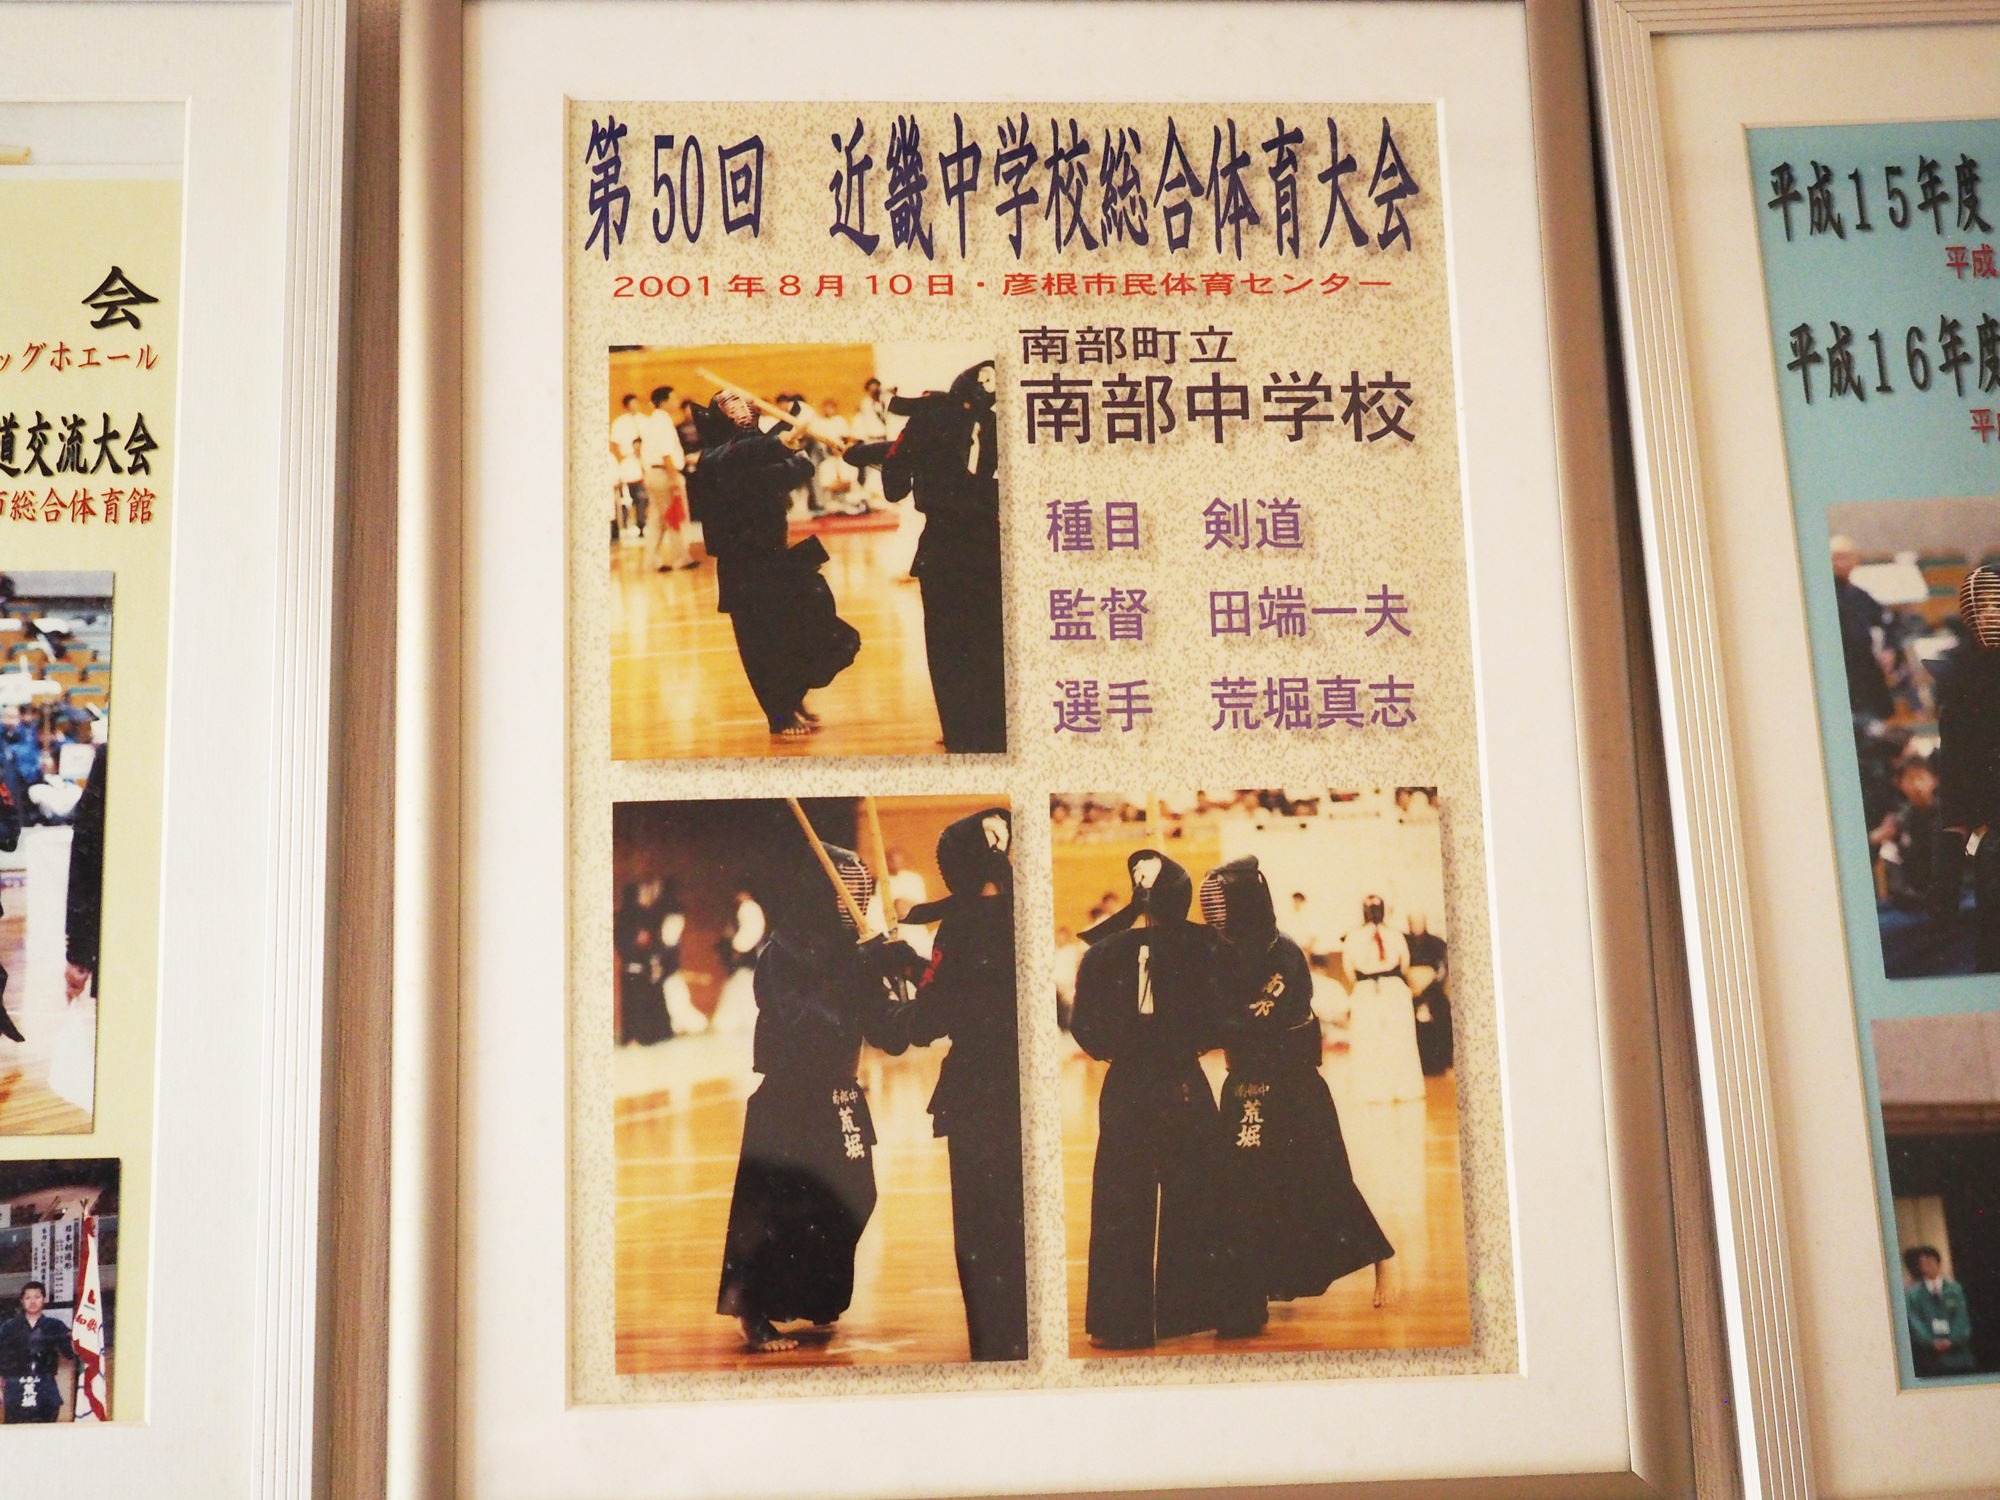 会
ッグホエール
道交流大会
市総合体育館
荒堀
第50回 近畿中学校総合体育大会
2001年8月10日・彦根市民体育センター
南部町立
南部中学校
種目 剣道
監督 田端一夫
選手 荒堀真志
南部中
荒堀
南部中
荒堀
平成15年度
平成
平成16年度
平成